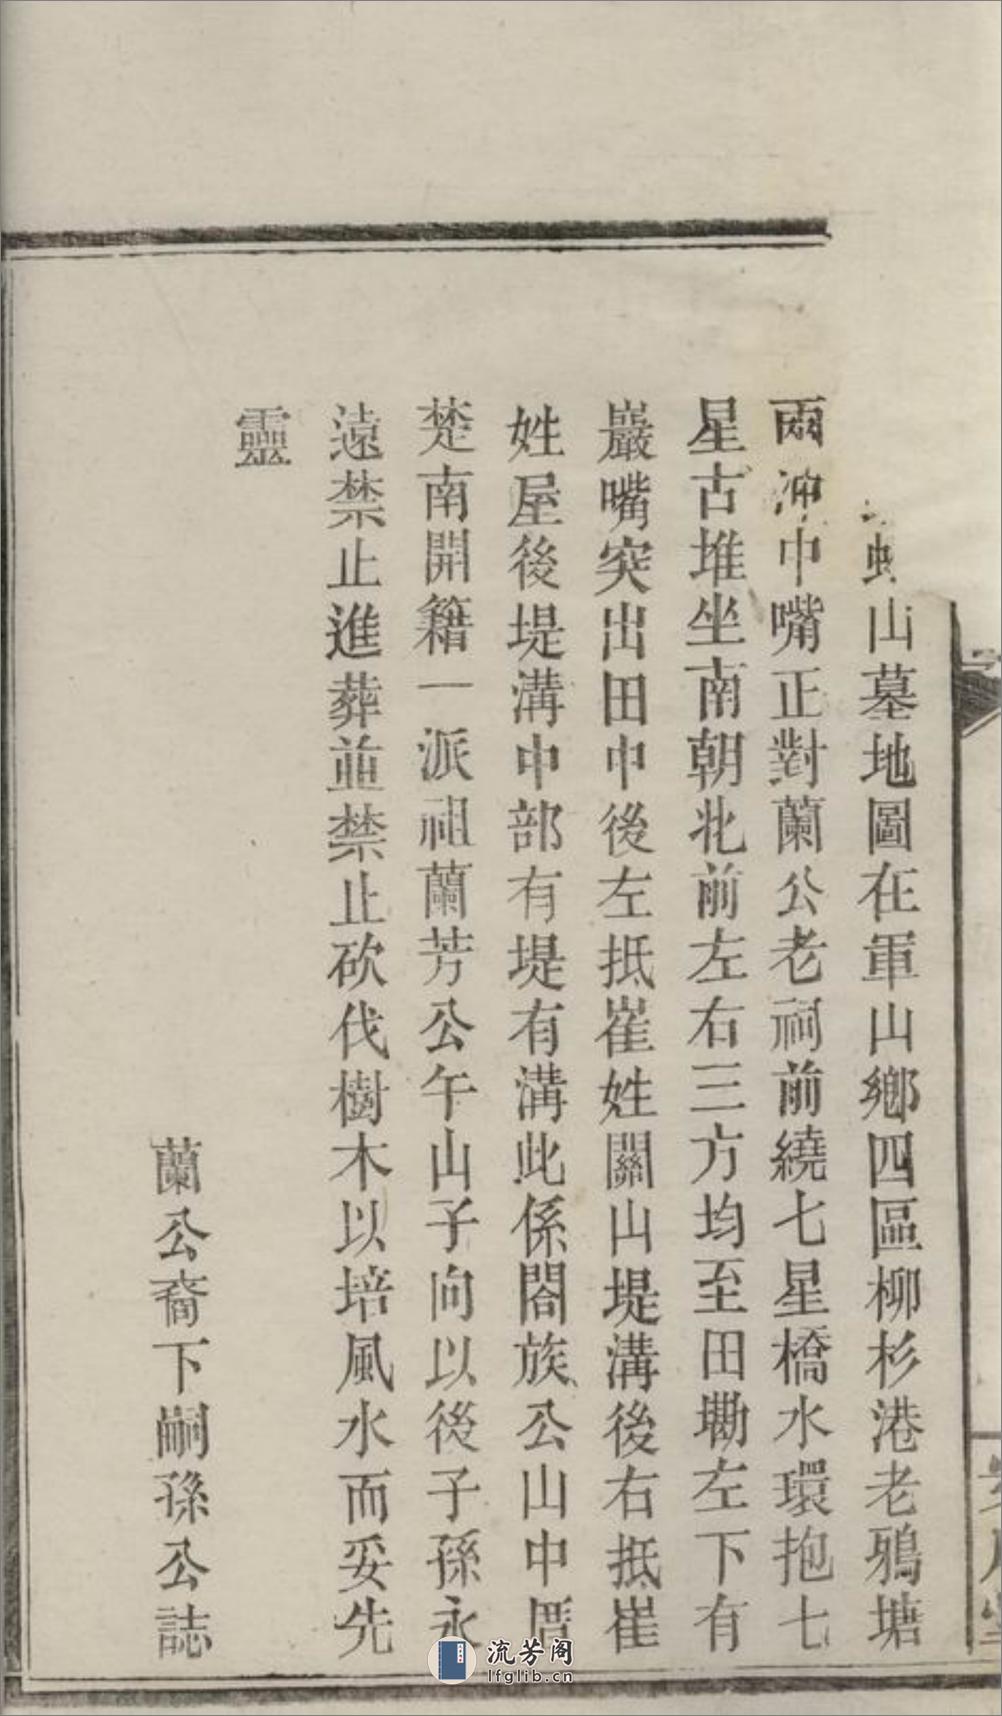 山墓地圖在軍山鄉四區柳杉港老鴉塘
兩沖中嘴正對蘭公老祠前繞七星橋水環抱七
星古堆坐南朝北前左右三方均至田墈左下有
巖嘴突出田中後左抵崔姓關山堤溝後右抵崔
姓屋後堤溝中部有堤有溝此係閤族公山中厝
楚南開籍一派祖蘭芳公午山子向以後子孫永
遠禁止進葬並禁止砍伐樹木以培風水而妥先
靈
蘭公裔下嗣孫公誌
流芳阁
lfglib.cn